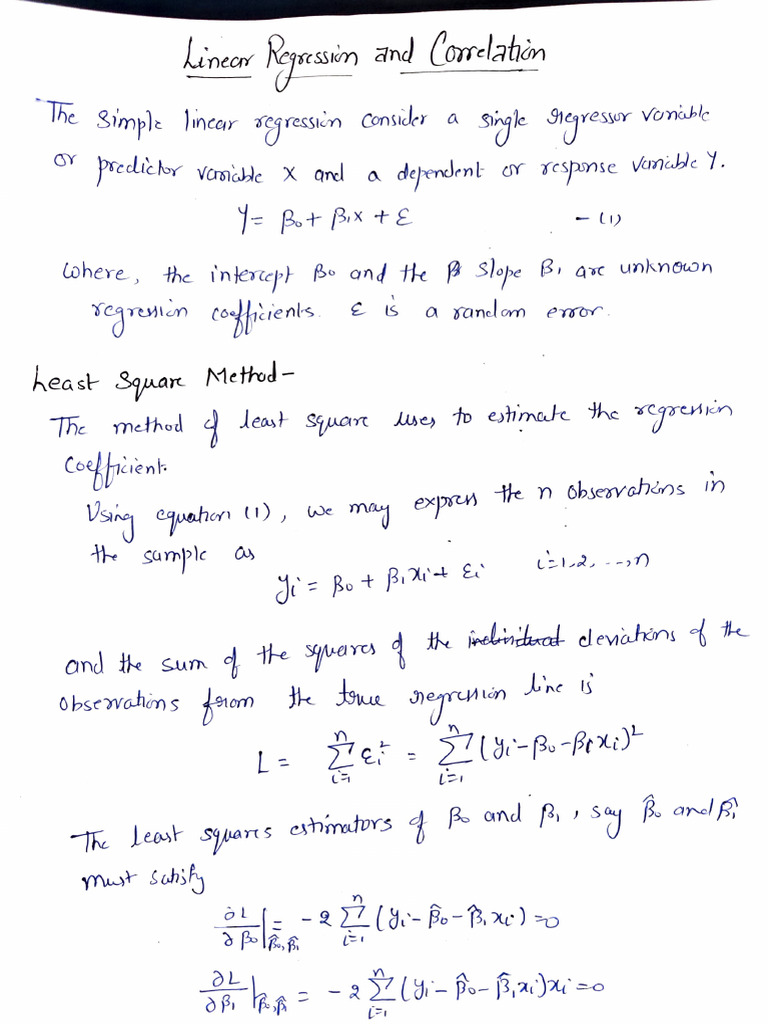 Linear Regression and Correlation
The simple linear regression consider a single regressor variable
or predictor variable X and a dependent or response variable Y.
Y = β₀ + β₁x + ε - (1)
Where, the intercept β₀ and the slope β₁ are unknown
regression coefficients. ε is a random error.
Least Square Method-
The method of least square uses to estimate the regression
coefficient.
Using equation (1), we may express the n observations in
the sample as
yᵢ = β₀ + β₁xᵢ + εᵢ i=1,2,...,n
and the sum of the squares of the individual deviations of the
observations from the true regression line is
L = Σᵢ₌₁ⁿ εᵢ² = Σᵢ₌₁ⁿ (yᵢ-β₀-β₁xᵢ)²
The least squares estimators of β₀ and β₁, say β̂₀ and β̂₁
must satisfy
∂L/∂β₀|β̂₀,β̂₁ = -2 Σᵢ₌₁ⁿ (yᵢ-β̂₀-β̂₁xᵢ)=0
∂L/∂β₁|β̂₀,β̂₁ = -2 Σᵢ₌₁ⁿ (yᵢ-β̂₀-β̂₁xᵢ)xᵢ=0